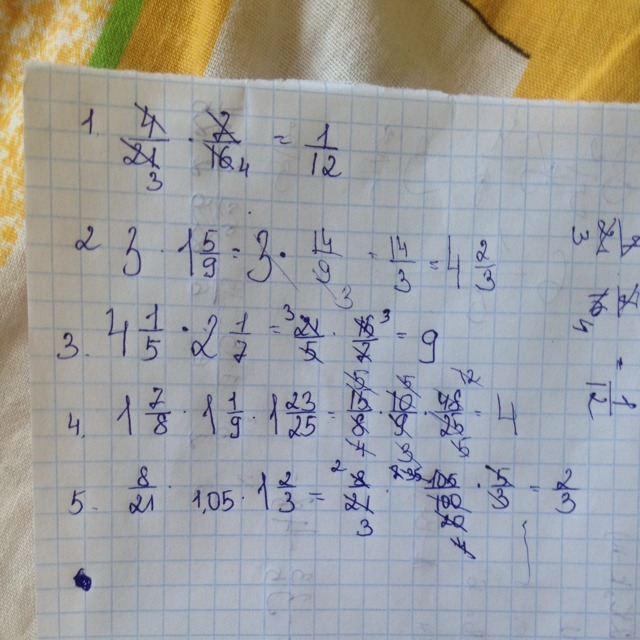 1. 4/21 · 7/16 = 1/12
2 3 · 1 5/9 = 3 · 14/9 = 14/3 = 4 2/3
3. 4 1/5 · 2 1/7 = 21/5 · 15/7 = 9
4. 1 7/8 · 1 1/9 · 1 23/25 = 15/8 · 10/9 · 48/25 = 4
5. 8/21 · 1,05 · 1 2/3 = 8/21 · 105/100 · 5/3 = 2/3